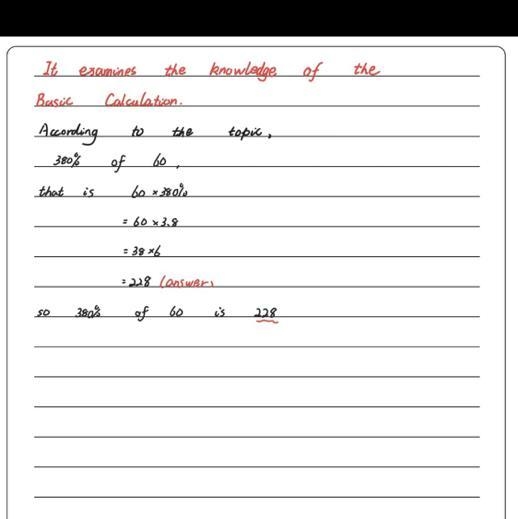 It examines the knowledge of the
Basic Calculation.
According to the topic,
380% of 60,
that is 60 × 380%
= 60 × 3.8
= 38 × 6
= 228 (answer)
so 380% of 60 is 228